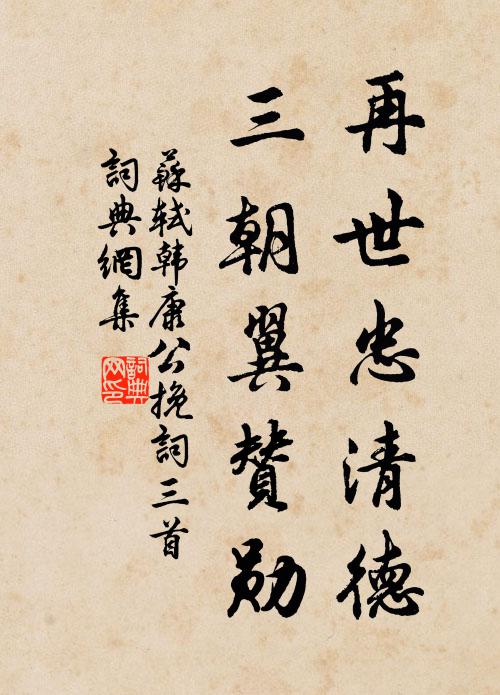 再世忠清德
三朝翼贊勛
蘇軾韓康公挽詞三首
詞典網集
詞典
网印